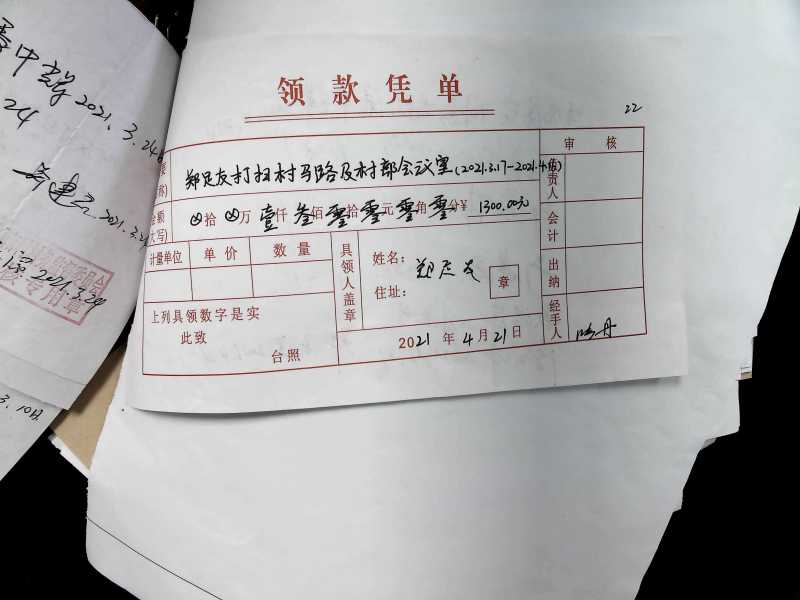 2021.3.24
24
2021.3.24
专用章
2021.3.24
3.10日
领款凭单
22
郑足友打扫村马路及村部会议室(2021.3.17-2021.4.16)
审核
负责人
金额(大写) ⊗拾⊗万壹仟叁佰零拾零元零角零分¥1300.00元
会计
计量单位 单价 数量
具领人盖章
姓名:郑足友
住址:
章
出纳
上列具领数字是实
此致
台照
经手人
2021年4月21日